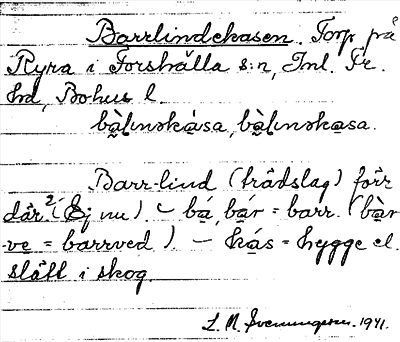 Barrlindekasen. Torp på
Ryra i Forshälla s:n, Inl. Fr.
hd, Bohus l.
bàlınskàsa, bàlınskasa.
Barr-lind (trädslag) förr
där. (Ej nu). – bá, bár = barr. (bàr
-ve = barrved). – kás = hygge el.
slått i skog.
1941.